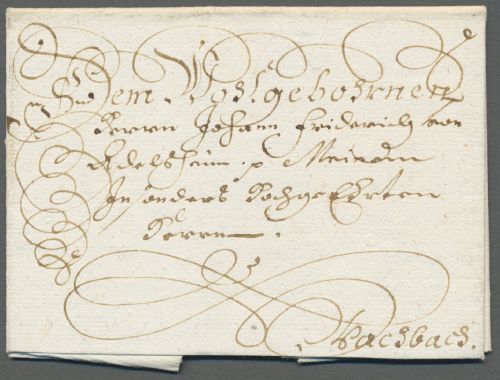 Dem Wohlgebohrnen
Herrn Johann Friderich von
Adelsheim p Meinem
Insonders Hochgeehrten
Herrn.